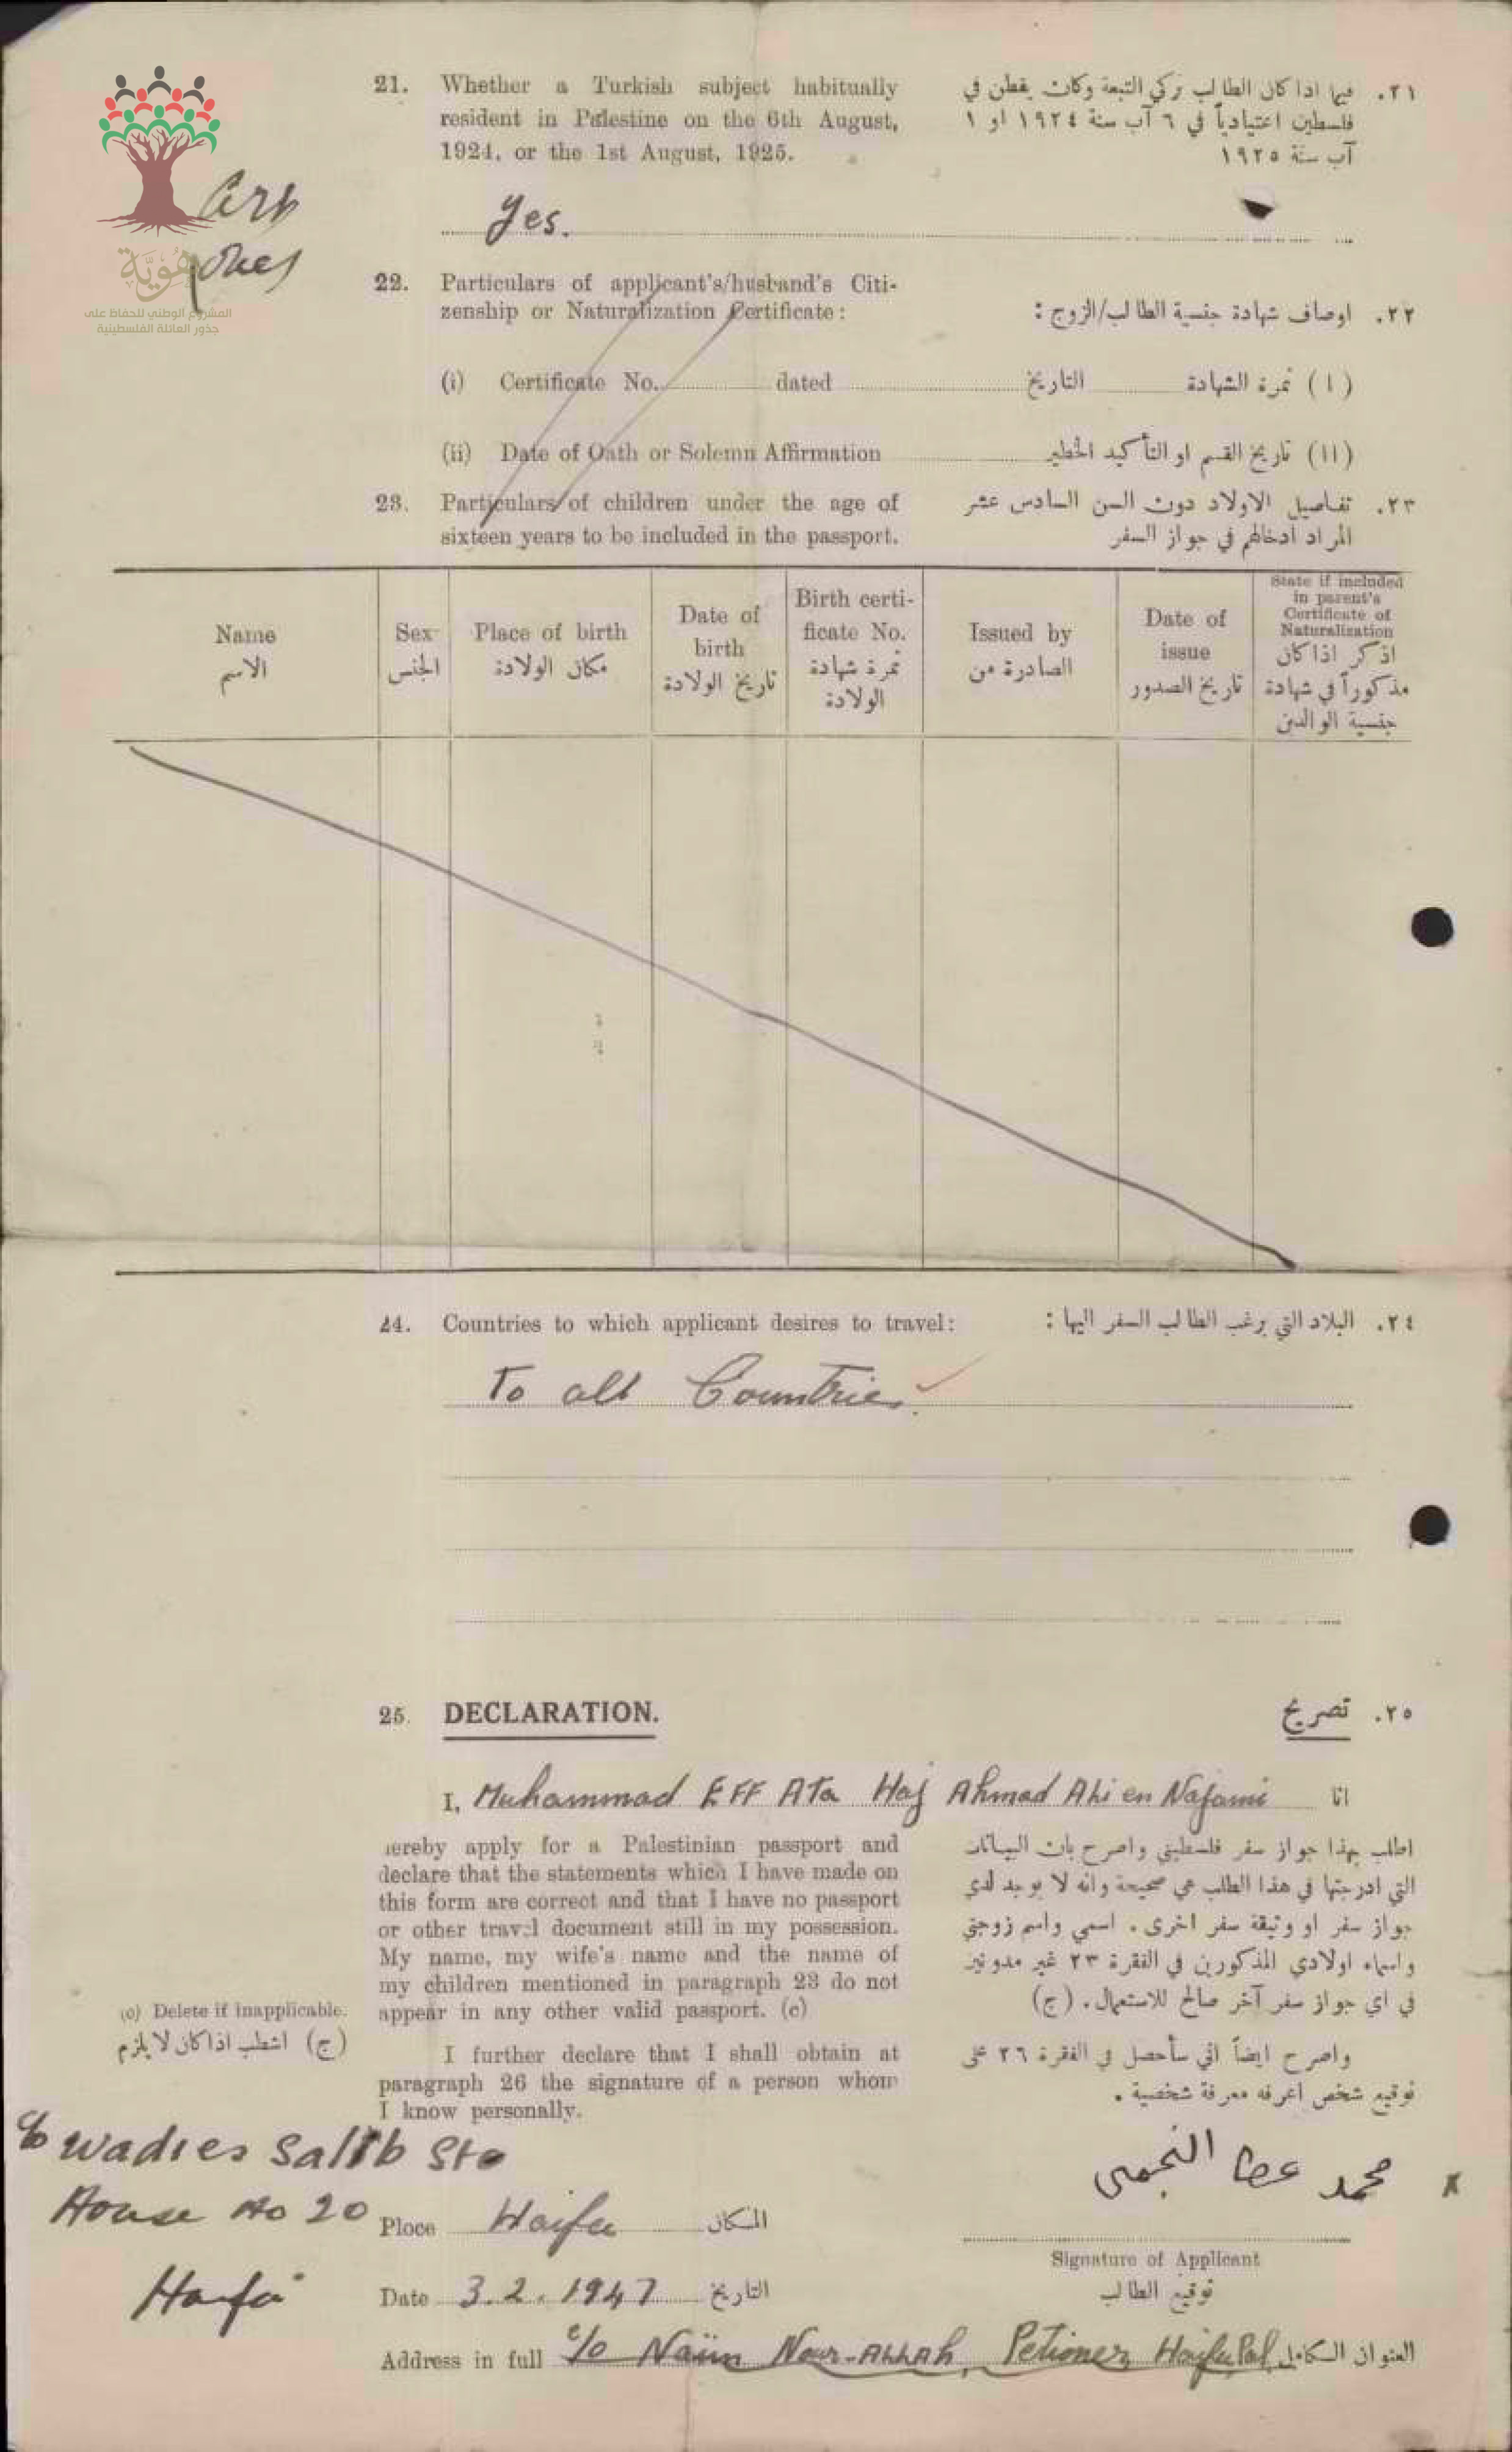 21. Whether a Turkish subject habitually
resident in Palestine on the 6th August,
1924, or the 1st August, 1925.
٢١. فيما اذا كان الطالب تركي التبعة وكان يقطن في
فلسطين اعتيادياً في ٦ آب سنة ١٩٢٤ او ١
آب سنة ١٩٢٥
Yes.
هُوِيَّة
المشروع الوطني للحفاظ على
جذور العائلة الفلسطينية
22. Particulars of applicant's/husband's Citi-
zenship or Naturalization Certificate:
٢٢. اوصاف شهادة جنسية الطالب/الزوج :
(i) Certificate No. dated التاريخ (١) نمرة الشهادة
(ii) Date of Oath or Solemn Affirmation (١١) تاريخ القسم او التأكيد الخطير
23. Particulars of children under the age of
sixteen years to be included in the passport.
٢٣. تفاصيل الاولاد دون السن السادس عشر
المراد ادخالهم في جواز السفر
Name
الاسم
Sex
الجنس
Place of birth
مكان الولادة
Date of
birth
تاريخ الولادة
Birth certi-
ficate No.
نمرة شهادة
الولادة
Issued by
الصادرة من
Date of
issue
تاريخ الصدور
State if included
in parent's
Certificate of
Naturalization
اذكر اذا كان
مذكوراً في شهادة
جنسية الوالدين
24. Countries to which applicant desires to travel: ٢٤. البلاد التي يرغب الطالب السفر اليها :
To all Countries
25. DECLARATION. ٢٥. تصريح
I, Muhammad Eff Ata Haj Ahmad Ali en Najami انا
hereby apply for a Palestinian passport and
declare that the statements which I have made on
this form are correct and that I have no passport
or other travel document still in my possession.
My name, my wife's name and the name of
my children mentioned in paragraph 23 do not
appear in any other valid passport. (c)
اطلب بهذا جواز سفر فلسطيني واصرح بان البيانات
التي ادرجتها في هذا الطلب هي صحيحة وانه لا يوجد لدي
جواز سفر او وثيقة سفر اخرى . اسمي واسم زوجتي
واسماء اولادي المذكورين في الفقرة ٢٣ غير مدونين
في اي جواز سفر آخر صالح للاستعمال . (ج)
(c) Delete if inapplicable.
(ج) اشطب اذا كان لا يلزم
I further declare that I shall obtain at
paragraph 26 the signature of a person whom
I know personally.
واصرح ايضاً اني سأحصل في الفقرة ٢٦ على
توقيع شخص اعرفه معرفة شخصية .
c/o Wadies Salib Sto
House No 20
Haifa
محمد عطا النجمي x
Place Haifa المكان
Signature of Applicant
توقيع الطالب
Date 3.2.1947 التاريخ
Address in full c/o Naim Nour-Allah, Petioner, Haifa, Pal. العنوان الكامل